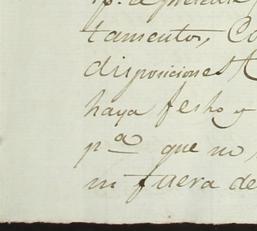 tamentos, Co
disposiciones
haya fesho y
pª que no,
ni fuera de